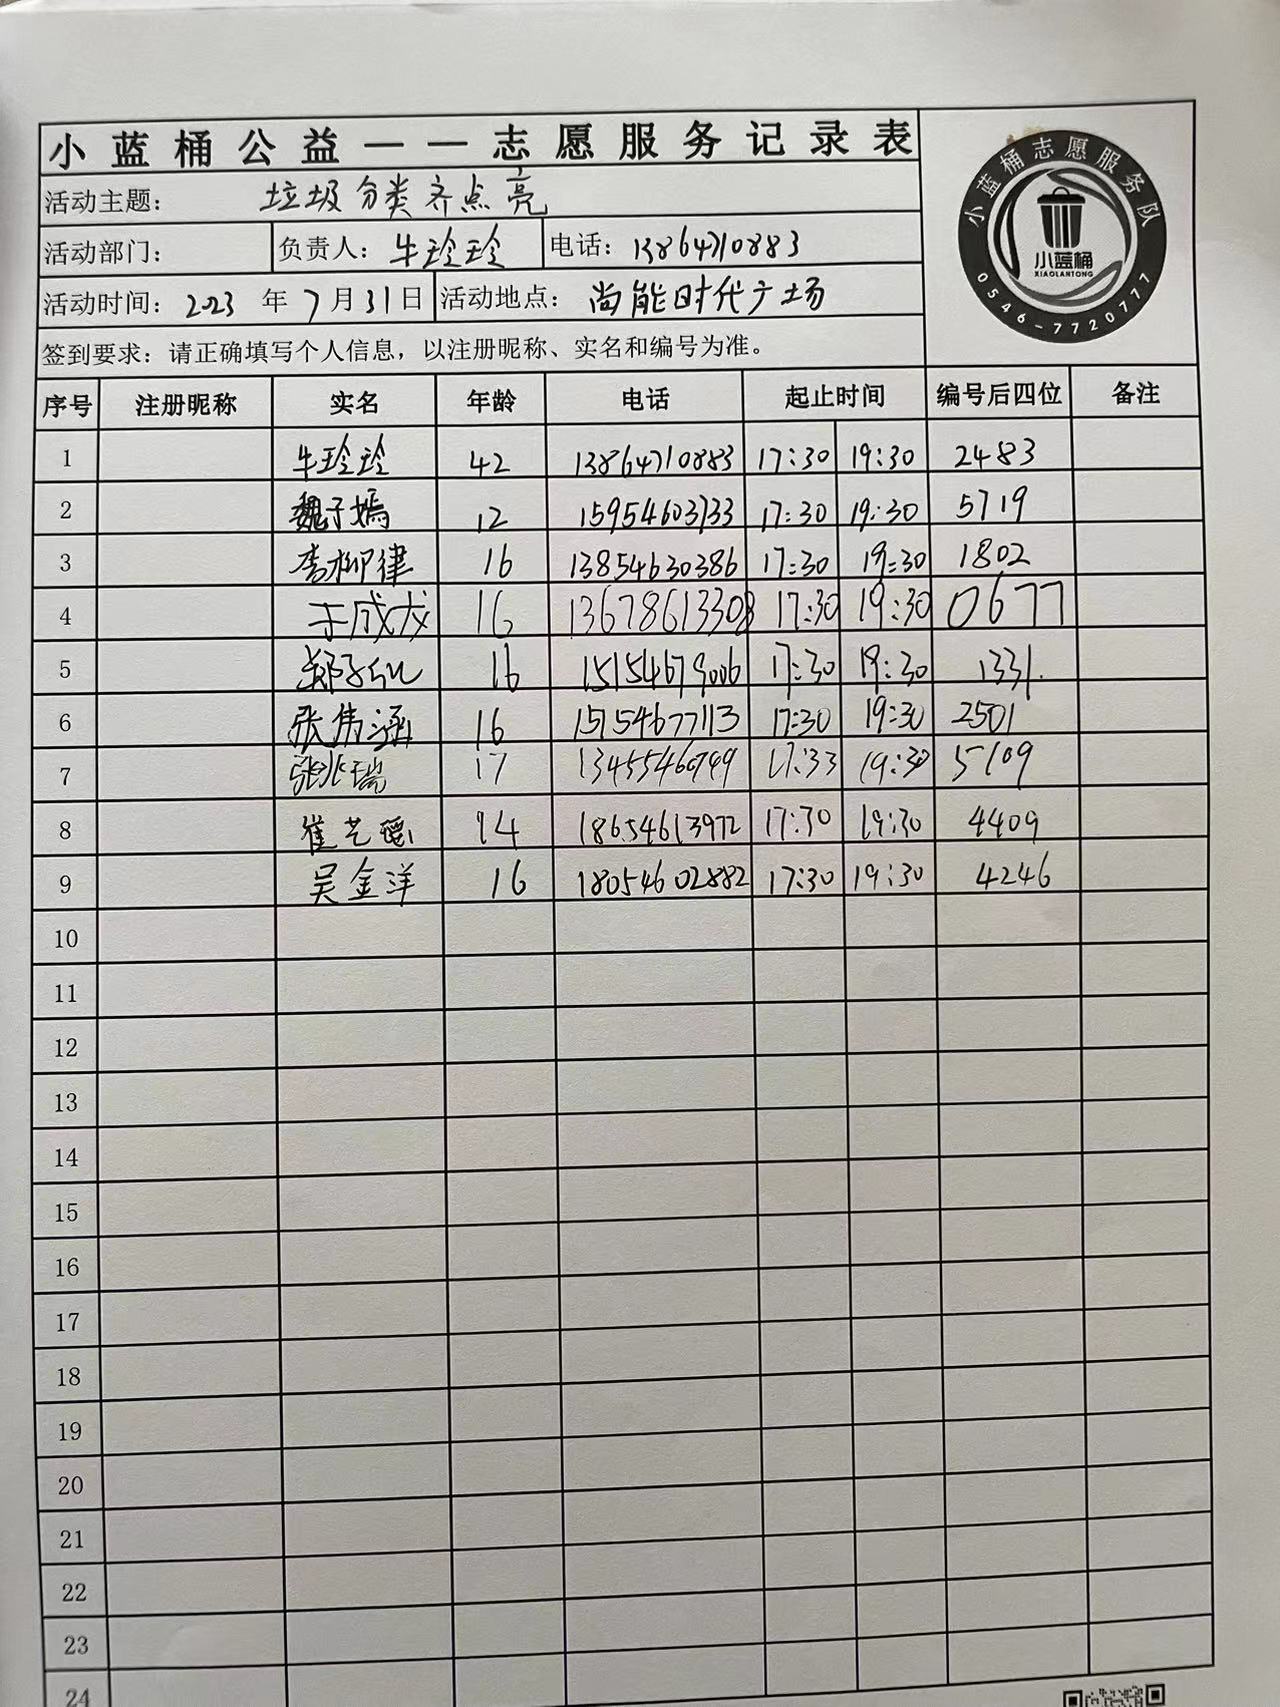 小蓝桶公益——志愿服务记录表
活动主题： 垃圾分类齐点亮
活动部门： 负责人：牛玲玲 电话：13864710883
活动时间：2023 年 7 月 31 日 活动地点：尚能时代广场
签到要求：请正确填写个人信息，以注册昵称、实名和编号为准。
小蓝桶志愿服务队
小蓝桶
XIAOLANTONG
0546-7720777
序号 注册昵称 实名 年龄 电话 起止时间 编号后四位 备注
1 牛玲玲 42 13864710883 17:30 19:30 2483
2 魏子嫣 12 15954603733 17:30 19:30 5719
3 李柳律 16 13854630386 17:30 19:30 1802
4 于成龙 16 13678613308 17:30 19:30 0677
5 16 15154679006 17:30 19:30 1331.
6 张伟涵 16 15154677113 17:30 19:30 2501
7 张兆瑞 17 17:33 19:30 5109
8 崔艺 14 18654613972 17:30 19:30 4409
9 吴金洋 16 18054602882 17:30 19:30 4246
10
11
12
13
14
15
16
17
18
19
20
21
22
23
24